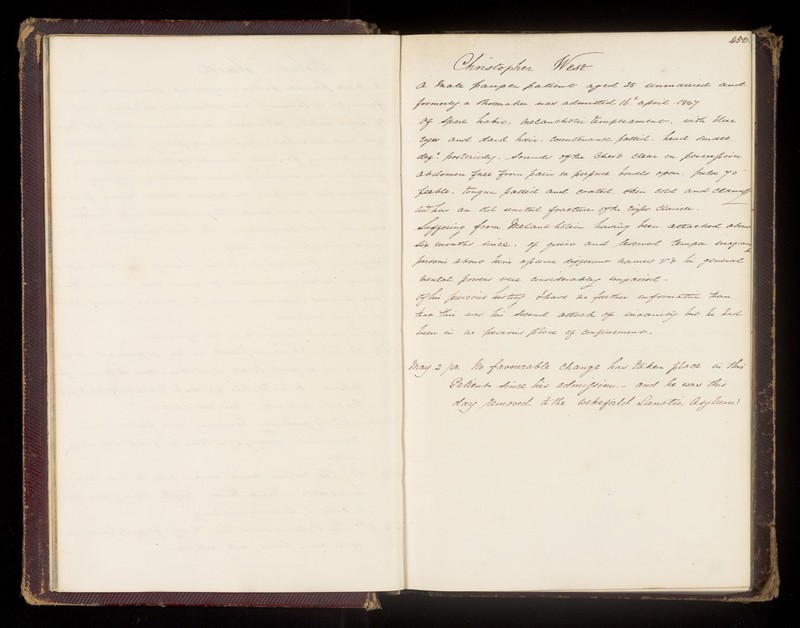 450.
Christopher West
A Male pauper patient aged 25 unmarried and
formerly a Shoemaker was admitted 16th April 1847
Of Spare habit. Melancholic temperament. with blue
Eyes and dark hair. Countenance pallid. head small
deft. posteriorly. Sounds of the Chest clear on percussion
Abdomen free from pain on pressure bowels open. pulse 70
feeble. tongue pallid and coated. skin cold and clammy
has an old united fracture of the right Clavicle.
Suffering from Melancholia having been attacked about
six months since. of quiet and reserved temper imagines
persons about him assume different names &c in general
mental powers were considerably impaired.
Of his previous history I have no further information than
that this was his second attack of insanity but he had
been in no previous place of confinement.
May 2 No favourable change has taken place in this
Patient since his admission. - and he was this
day removed to the Wakefield Lunatic Asylum